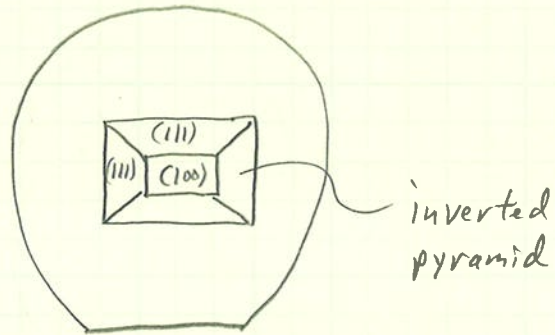 (111)
(111) (100)
inverted
pyramid